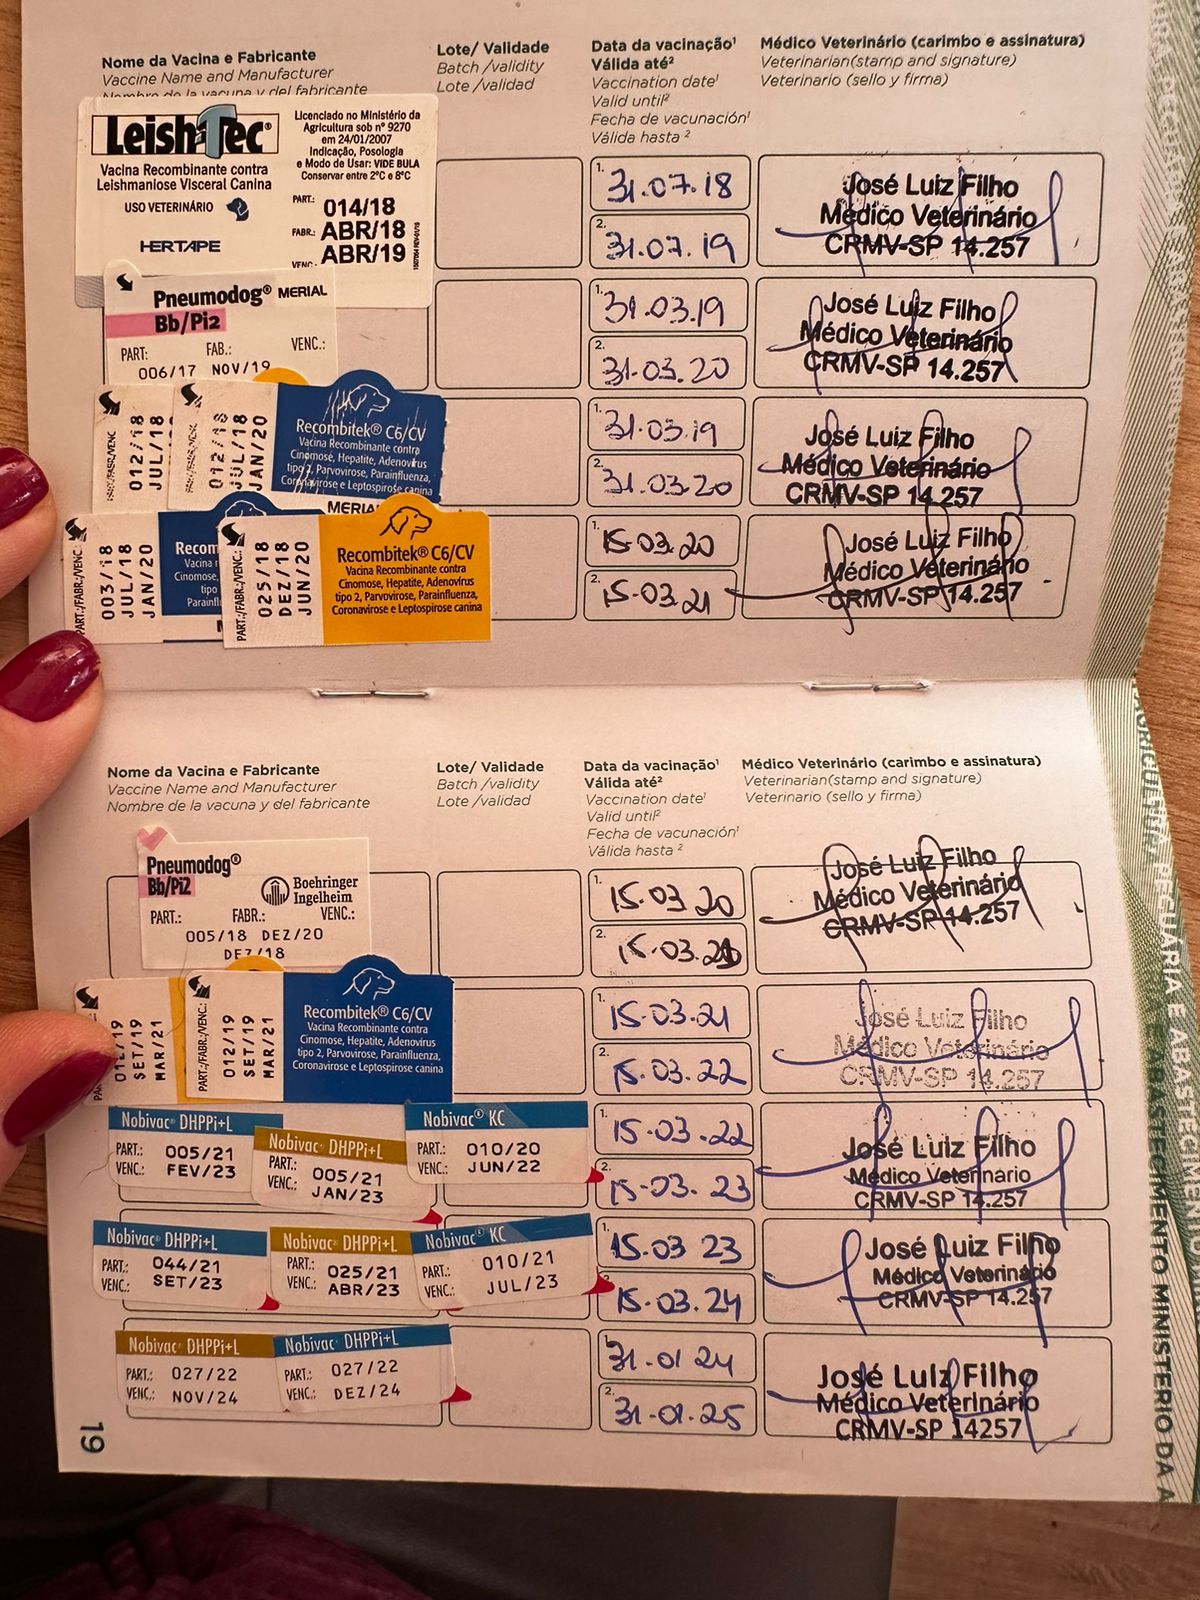 Nome da Vacina e Fabricante
Vaccine Name and Manufacturer
Nombre de la vacuna y del fabricante
Lote/ Validade
Batch /validity
Lote /validad
Data da vacinação¹
Válida até²
Vaccination date¹
Valid until²
Fecha de vacunación¹
Válida hasta ²
Médico Veterinário (carimbo e assinatura)
Veterinarian(stamp and signature)
Veterinario (sello y firma)
LeishTec®
Vacina Recombinante contra
Leishmaniose Visceral Canina
USO VETERINÁRIO
HERTAPE
Licenciado no Ministério da
Agricultura sob nº 9270
em 24/01/2007
Indicação, Posologia
e Modo de Usar: VIDE BULA
Conservar entre 2°C e 8°C
PART.: 014/18
FABR.: ABR/18
VENC.: ABR/19
1. 31.07.18
2. 31.07.19
José Luiz Filho
Médico Veterinário
CRMV-SP 14.257
Pneumodog® MERIAL
Bb/Pi2
PART: FAB.: VENC.:
006/17 NOV/19
1. 31.03.19
2. 31.03.20
José Luiz Filho
Médico Veterinário
CRMV-SP 14.257
PART./FABR./VENC.
012/18
JUL/18
012/18
JUL/18
JAN/20
Recombitek® C6/CV
Vacina Recombinante contra
Cinomose, Hepatite, Adenovírus
tipo 2, Parvovirose, Parainfluenza,
Coronavirose e Leptospirose canina
MERIAL
1. 31.03.19
2. 31.03.20
José Luiz Filho
Médico Veterinário
CRMV-SP 14.257
PART./FABR./VENC.:
003/18
JUL/18
JAN/20
Recom
Vacina r
Cinomose,
tipo
Parainfl
PART./FABR./VENC.:
025/18
DEZ/18
JUN/20
Recombitek® C6/CV
Vacina Recombinante contra
Cinomose, Hepatite, Adenovírus
tipo 2, Parvovirose, Parainfluenza,
Coronavirose e Leptospirose canina
1. 15.03.20
2. 15.03.21
José Luiz Filho
Médico Veterinário
CRMV-SP 14.257
Nome da Vacina e Fabricante
Vaccine Name and Manufacturer
Nombre de la vacuna y del fabricante
Lote/ Validade
Batch /validity
Lote /validad
Data da vacinação¹
Válida até²
Vaccination date¹
Valid until²
Fecha de vacunación¹
Válida hasta ²
Médico Veterinário (carimbo e assinatura)
Veterinarian(stamp and signature)
Veterinario (sello y firma)
Pneumodog®
Bb/Pi2
Boehringer
Ingelheim
PART.: FABR.: VENC.:
005/18 DEZ/20
DEZ/18
1. 15.03.20
2. 15.03.21
José Luiz Filho
Médico Veterinário
CRMV-SP 14.257
SET/19
MAR/21
PART./FABR./VENC.:
012/19
SET/19
MAR/21
Recombitek® C6/CV
Vacina Recombinante contra
Cinomose, Hepatite, Adenovírus
tipo 2, Parvovirose, Parainfluenza,
Coronavirose e Leptospirose canina
1. 15.03.21
2. 15.03.22
José Luiz Filho
Médico Veterinário
CRMV-SP 14.257
Nobivac® DHPPi+L
PART.: 005/21
VENC.: FEV/23
Nobivac® DHPPi+L
PART.: 005/21
VENC.: JAN/23
Nobivac® KC
PART.: 010/20
VENC.: JUN/22
1. 15.03.22
2. 15.03.23
José Luiz Filho
Médico Veterinário
CRMV-SP 14.257
Nobivac® DHPPi+L
PART.: 044/21
VENC.: SET/23
Nobivac® DHPPi+L
PART.: 025/21
VENC.: ABR/23
Nobivac® KC
PART.: 010/21
VENC.: JUL/23
1. 15.03 23
2. 15.03.24
José Luiz Filho
Médico Veterinário
CRMV-SP 14.257
Nobivac® DHPPi+L
PART.: 027/22
VENC.: NOV/24
Nobivac® DHPPi+L
PART.: 027/22
VENC.: DEZ/24
1. 31.01 24
2. 31.01.25
José Luiz Filho
Médico Veterinário
CRMV-SP 14257
19